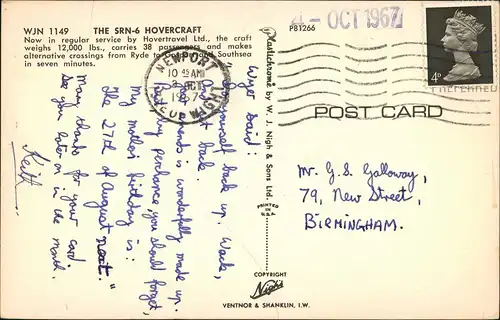 WJN 1149 THE SRN-6 HOVERCRAFT
Now in regular service by Hovertravel Ltd., the craft
weighs 12,000 lbs., carries 38 passengers and makes
alternative crossings from Ryde to and Southsea
in seven minutes
Who said:
yourself back up, Wade,
back.
is wonderfully made up.
But lest perchance you should forget,
My mother's birthday is:
The 27th of August next."
Many thanks for your card
See you later on in the month.
Keith
NEWPORT
10 15 AM
OCT
1967
ISLE OF WIGHT
Plastichrome by W. J. Nigh & Sons Ltd.
PRINTED IN
U.S.A.
P81266
4 - OCT 1967
4D
POST CARD
Mr. G. S. Galloway,
79, New Street,
BIRMINGHAM.
COPYRIGHT
Nigh's
VENTNOR & SHANKLIN, I.W.